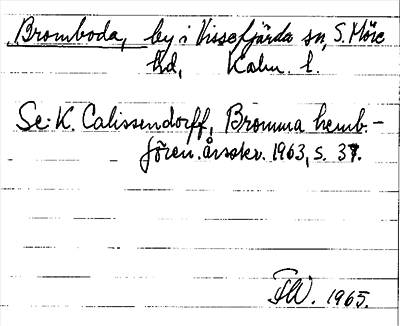 Bromboda, by i Vissefjärda sn, S. Möre
hd, Kalm. l.
Se: K. Calissendorff, Bromma hemb.-
fören. årsskr. 1963, s. 37.
FW. 1965.